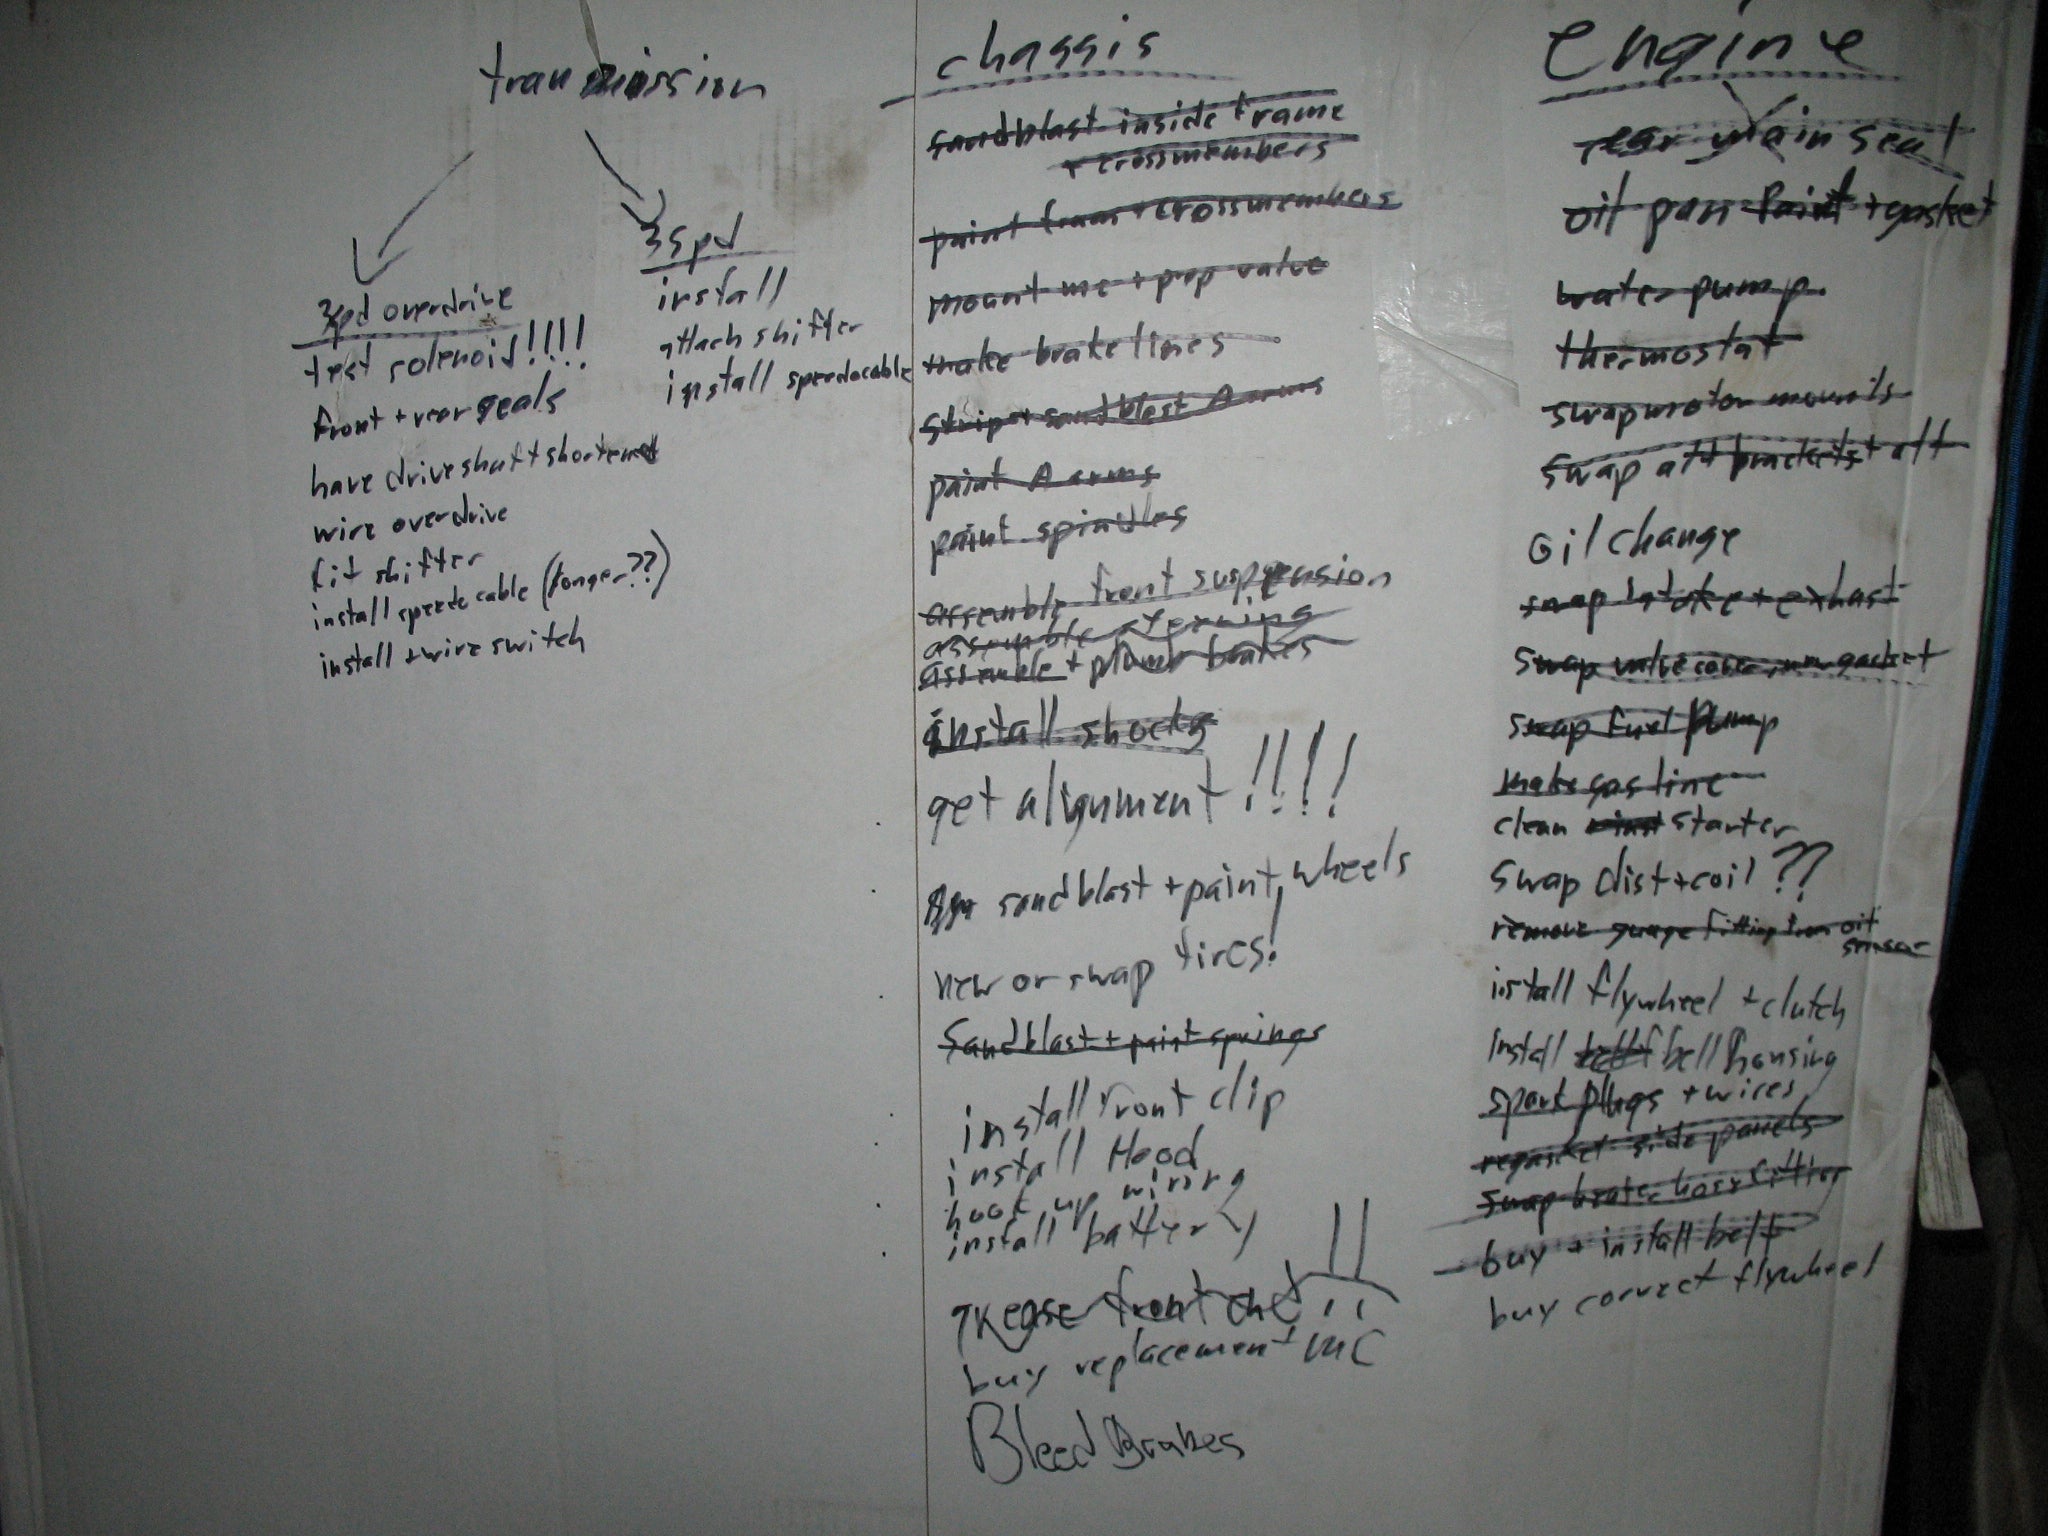 transmission
3spd overdrive
test solenoid!!!!
front + rear seals
have driveshaft shortened
wire overdrive
fit shifter
install speedo cable (longer??)
install + wire switch
3spd
install
attach shifter
install speedocable
chassis
sandblast inside frame
+ crossmembers
paint fram + crossmembers
mount mc + prop valve
make brake lines
strip + sandblast A arms
paint A arms
paint spindles
assemble front suspension
assemble steering
assemble + plumb brakes
install shocks
get alignment!!!!
sandblast + paint wheels
new or swap tires!
Sandblast + paint springs
install front clip
install Hood
hook up wiring
install battery
grease front end!!
buy replacement MC
Bleed Brakes
engine
rear main seal
oil pan paint + gasket
water pump
thermostat
swap motor mounts
swap alt brackets + alt
oil change
swap intake + exhast
swap valve cover, new gasket
swap fuel pump
make gas line
clean starter
swap dist + coil??
remove guage fitting from oil
sensor
install flywheel + clutch
install bell housing
spark plugs + wires
regasket side panels
swap water hose fitting
buy + install belt
buy correct flywheel